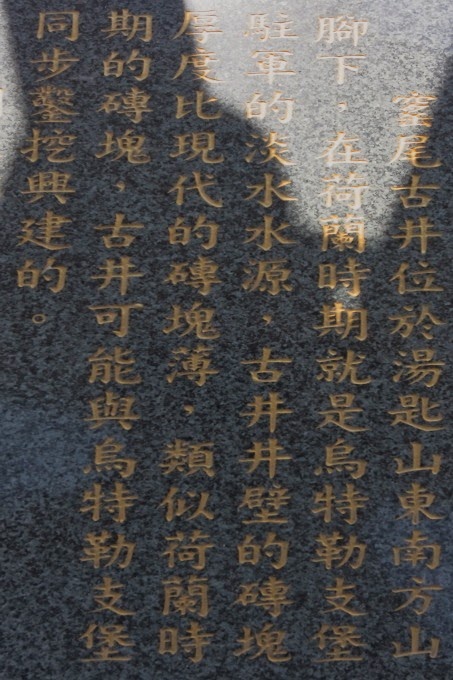 窰尾古井位於湯匙山東南方山
腳下，在荷蘭時期就是烏特勒支堡
駐軍的淡水水源，古井井壁的磚塊
厚度比現代的磚塊薄，類似荷蘭時
期的磚塊，古井可能與烏特勒支堡
同步鑿挖興建的。